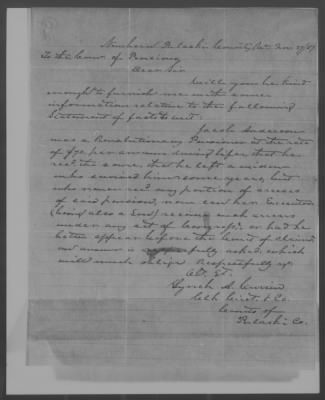 Newbern Pulaski County Va. Nov 27/57
To the Comr of Pensions
Dear Sir
Will you be kind
enough to furnish me with some
information relative to the following
Statement of facts to wit.
Jacob Anderson
was a Revolutionary Pensioner at the rate
of per annum during life, that he
recd the same, that he left a widow
who survived him some years, but
who never recd any portion of arrears
of said pension, now can her Executor
(being also a Son) receive such arrears
under any act of Congress, or had he
better appear before the Court of Claims
an answer is respectfully asked, which
will much oblige Respectfully yr
Obt. St.
Lynch A. Currin
Clk Circt. & Co.
Courts of
Pulaski Co.